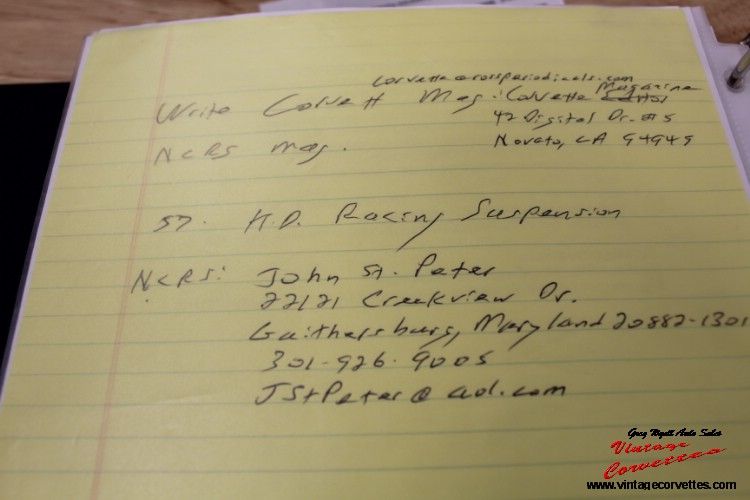 corvette@rossperiodicals.com
Write Corvett Mag: Corvette Magazine
42 Digital Dr. #5
NCRS Mag. Novato, CA 94949
57. H.D. Racing Suspension
NCRS: John St. Peter
22121 Creekview Dr.
Gaithersburg, Maryland 20882-1301
301-926-9005
JStPeter@aol.com
Greg Wyatt Auto Sales
Vintage
Corvettes
www.vintagecorvettes.com